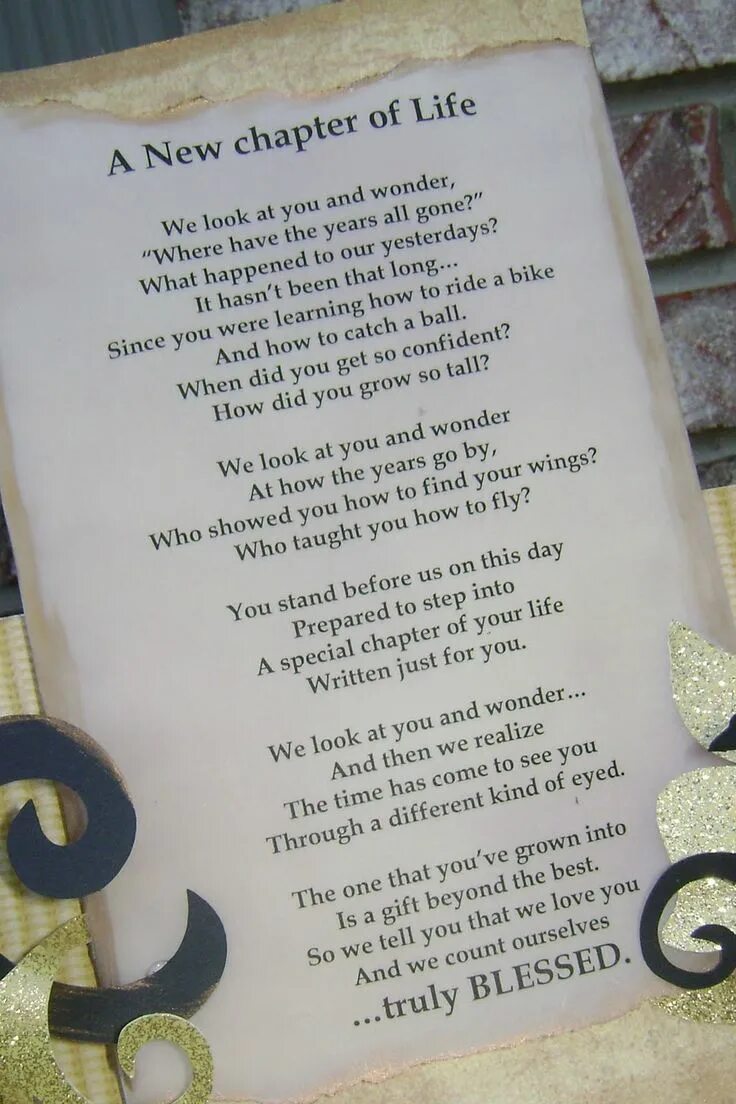 A New chapter of Life
We look at you and wonder,
“Where have the years all gone?”
What happened to our yesterdays?
It hasn’t been that long...
Since you were learning how to ride a bike
And how to catch a ball.
When did you get so confident?
How did you grow so tall?
We look at you and wonder
At how the years go by,
Who showed you how to find your wings?
Who taught you how to fly?
You stand before us on this day
Prepared to step into
A special chapter of your life
Written just for you.
We look at you and wonder...
And then we realize
The time has come to see you
Through a different kind of eyed.
The one that you’ve grown into
Is a gift beyond the best.
So we tell you that we love you
And we count ourselves
...truly BLESSED.